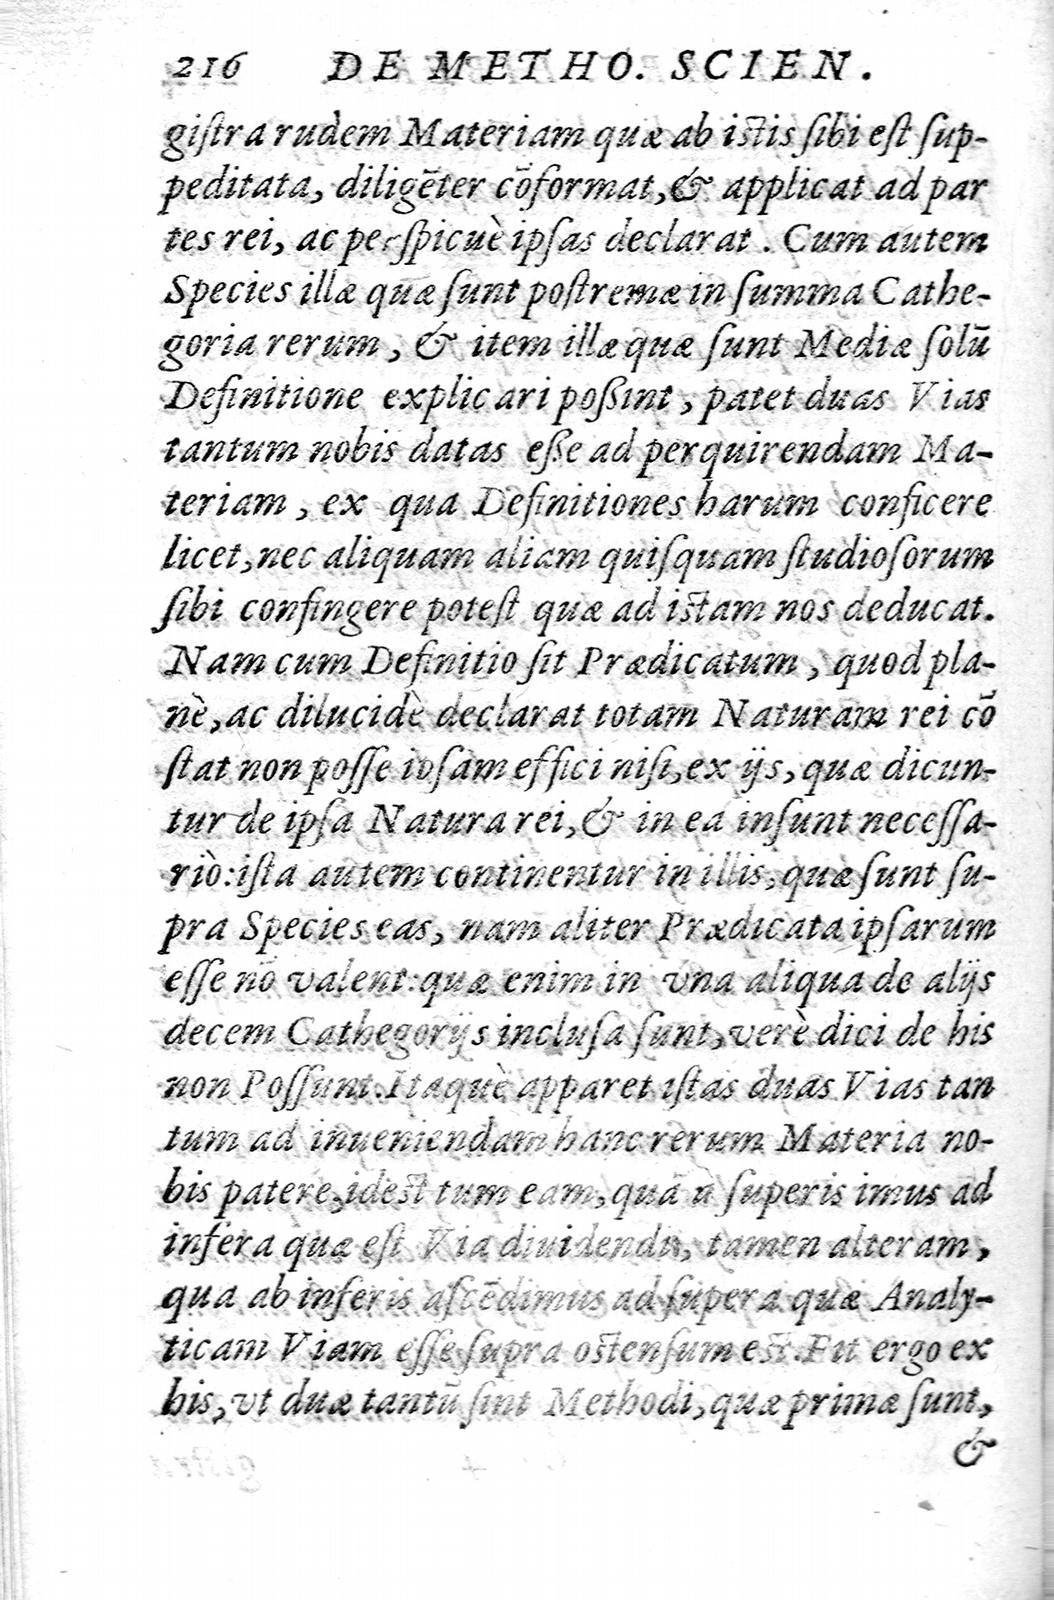 216 DE METHO. SCIEN.
giſtra rudem Materiam quæ ab istis ſibi eſt ſup-
peditata, diligēter cōformat, & applicat ad par
tes rei, ac perſpicuè ipſas declarat. Cum autem
Species illæ quæ ſunt poſtremæ in ſumma Cathe-
goria rerum, & item illæ quæ ſunt Mediæ ſolū
Definitione explicari poßint, patet duas Vias
tantum nobis datas eße ad perquirendam Ma-
teriam, ex qua Definitiones harum conficere
licet, nec aliquam aliam quiſquam ſtudioſorum
ſibi confingere poteſt quæ ad istam nos deducat.
Nam cum Definitio ſit Prædicatum, quod pla-
nè, ac dilucidè declarat totam Naturam rei cō
ſtat non poſſe ipſam effici niſi, ex ijs, quæ dicun-
tur de ipſa Natura rei, & in ea inſunt neceſſa-
riò: iſta autem continentur in illis, quæ ſunt ſu-
pra Species eas, nam aliter Prædicata ipſarum
eſſe nō valent: quæ enim in vna aliqua de alijs
decem Cathegorijs incluſa ſunt, verè dici de his
non Poſſunt. Itaquè apparet iſtas duas Vias tan
tum ad inueniendam hanc rerum Materia no-
bis patere, idest tum eam, qua a ſuperis imus ad
infera quæ eſt Via diuidendi, tamen alteram,
qua ab inferis aſcēdimus ad ſupera quæ Analy-
ticam Viam eſſe ſupra ostenſum est. Fit ergo ex
his, vt duæ tantū ſint Methodi, quæ primæ ſunt,
&